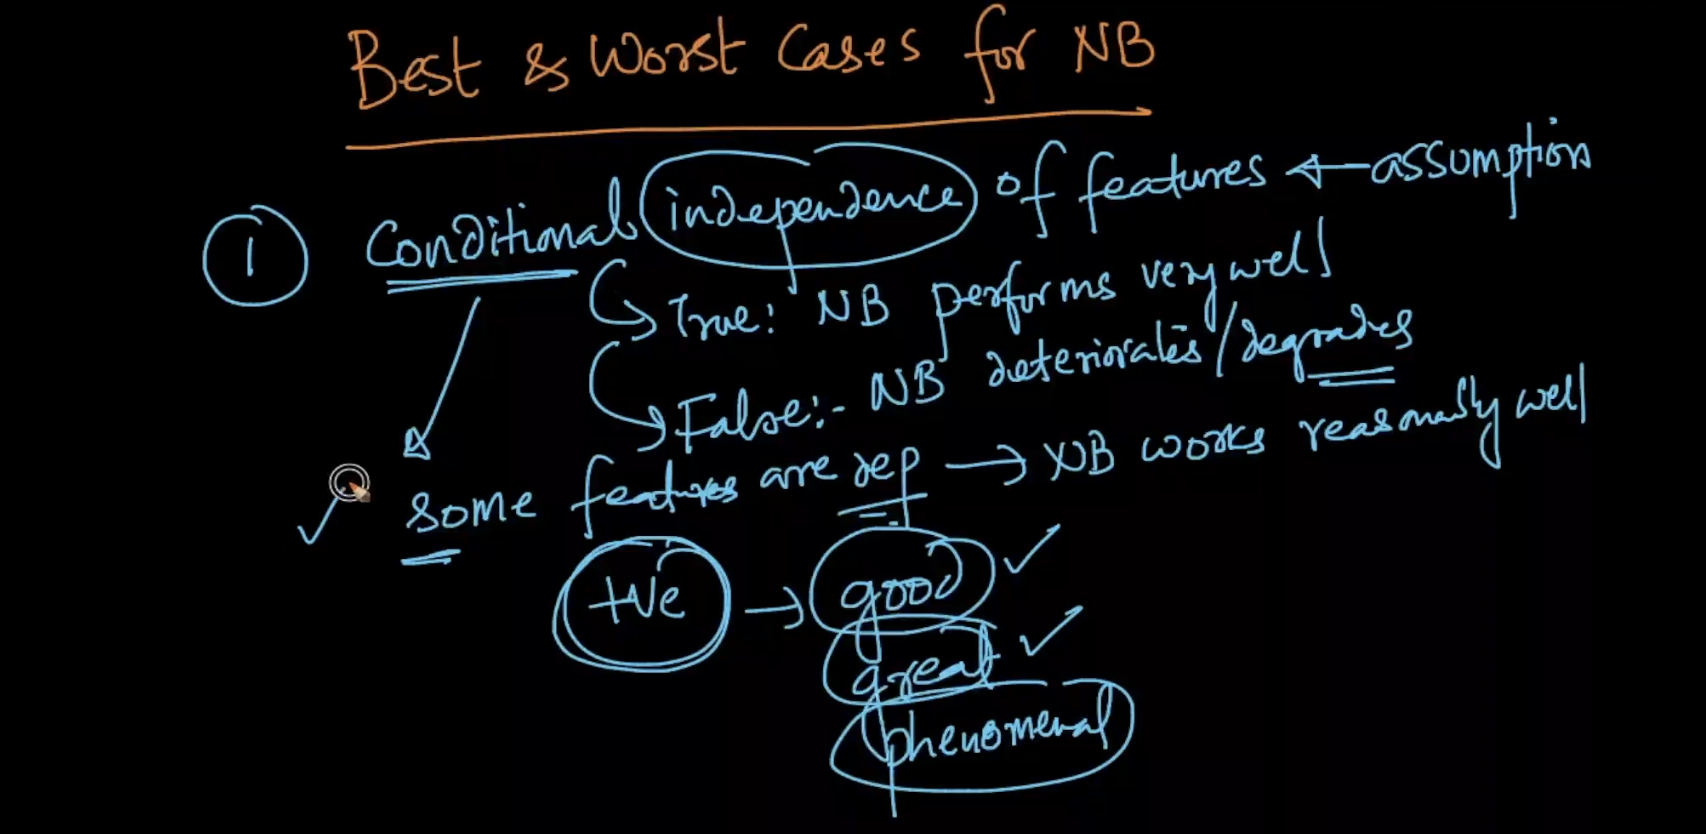 Best & Worst Cases for NB
1 Conditional independence of features ← assumption
True: NB performs very well
False:- NB deteriorates/degrades
✓ some features are dep → NB works reasonably well
+ve → good ✓
great ✓
phenomenal